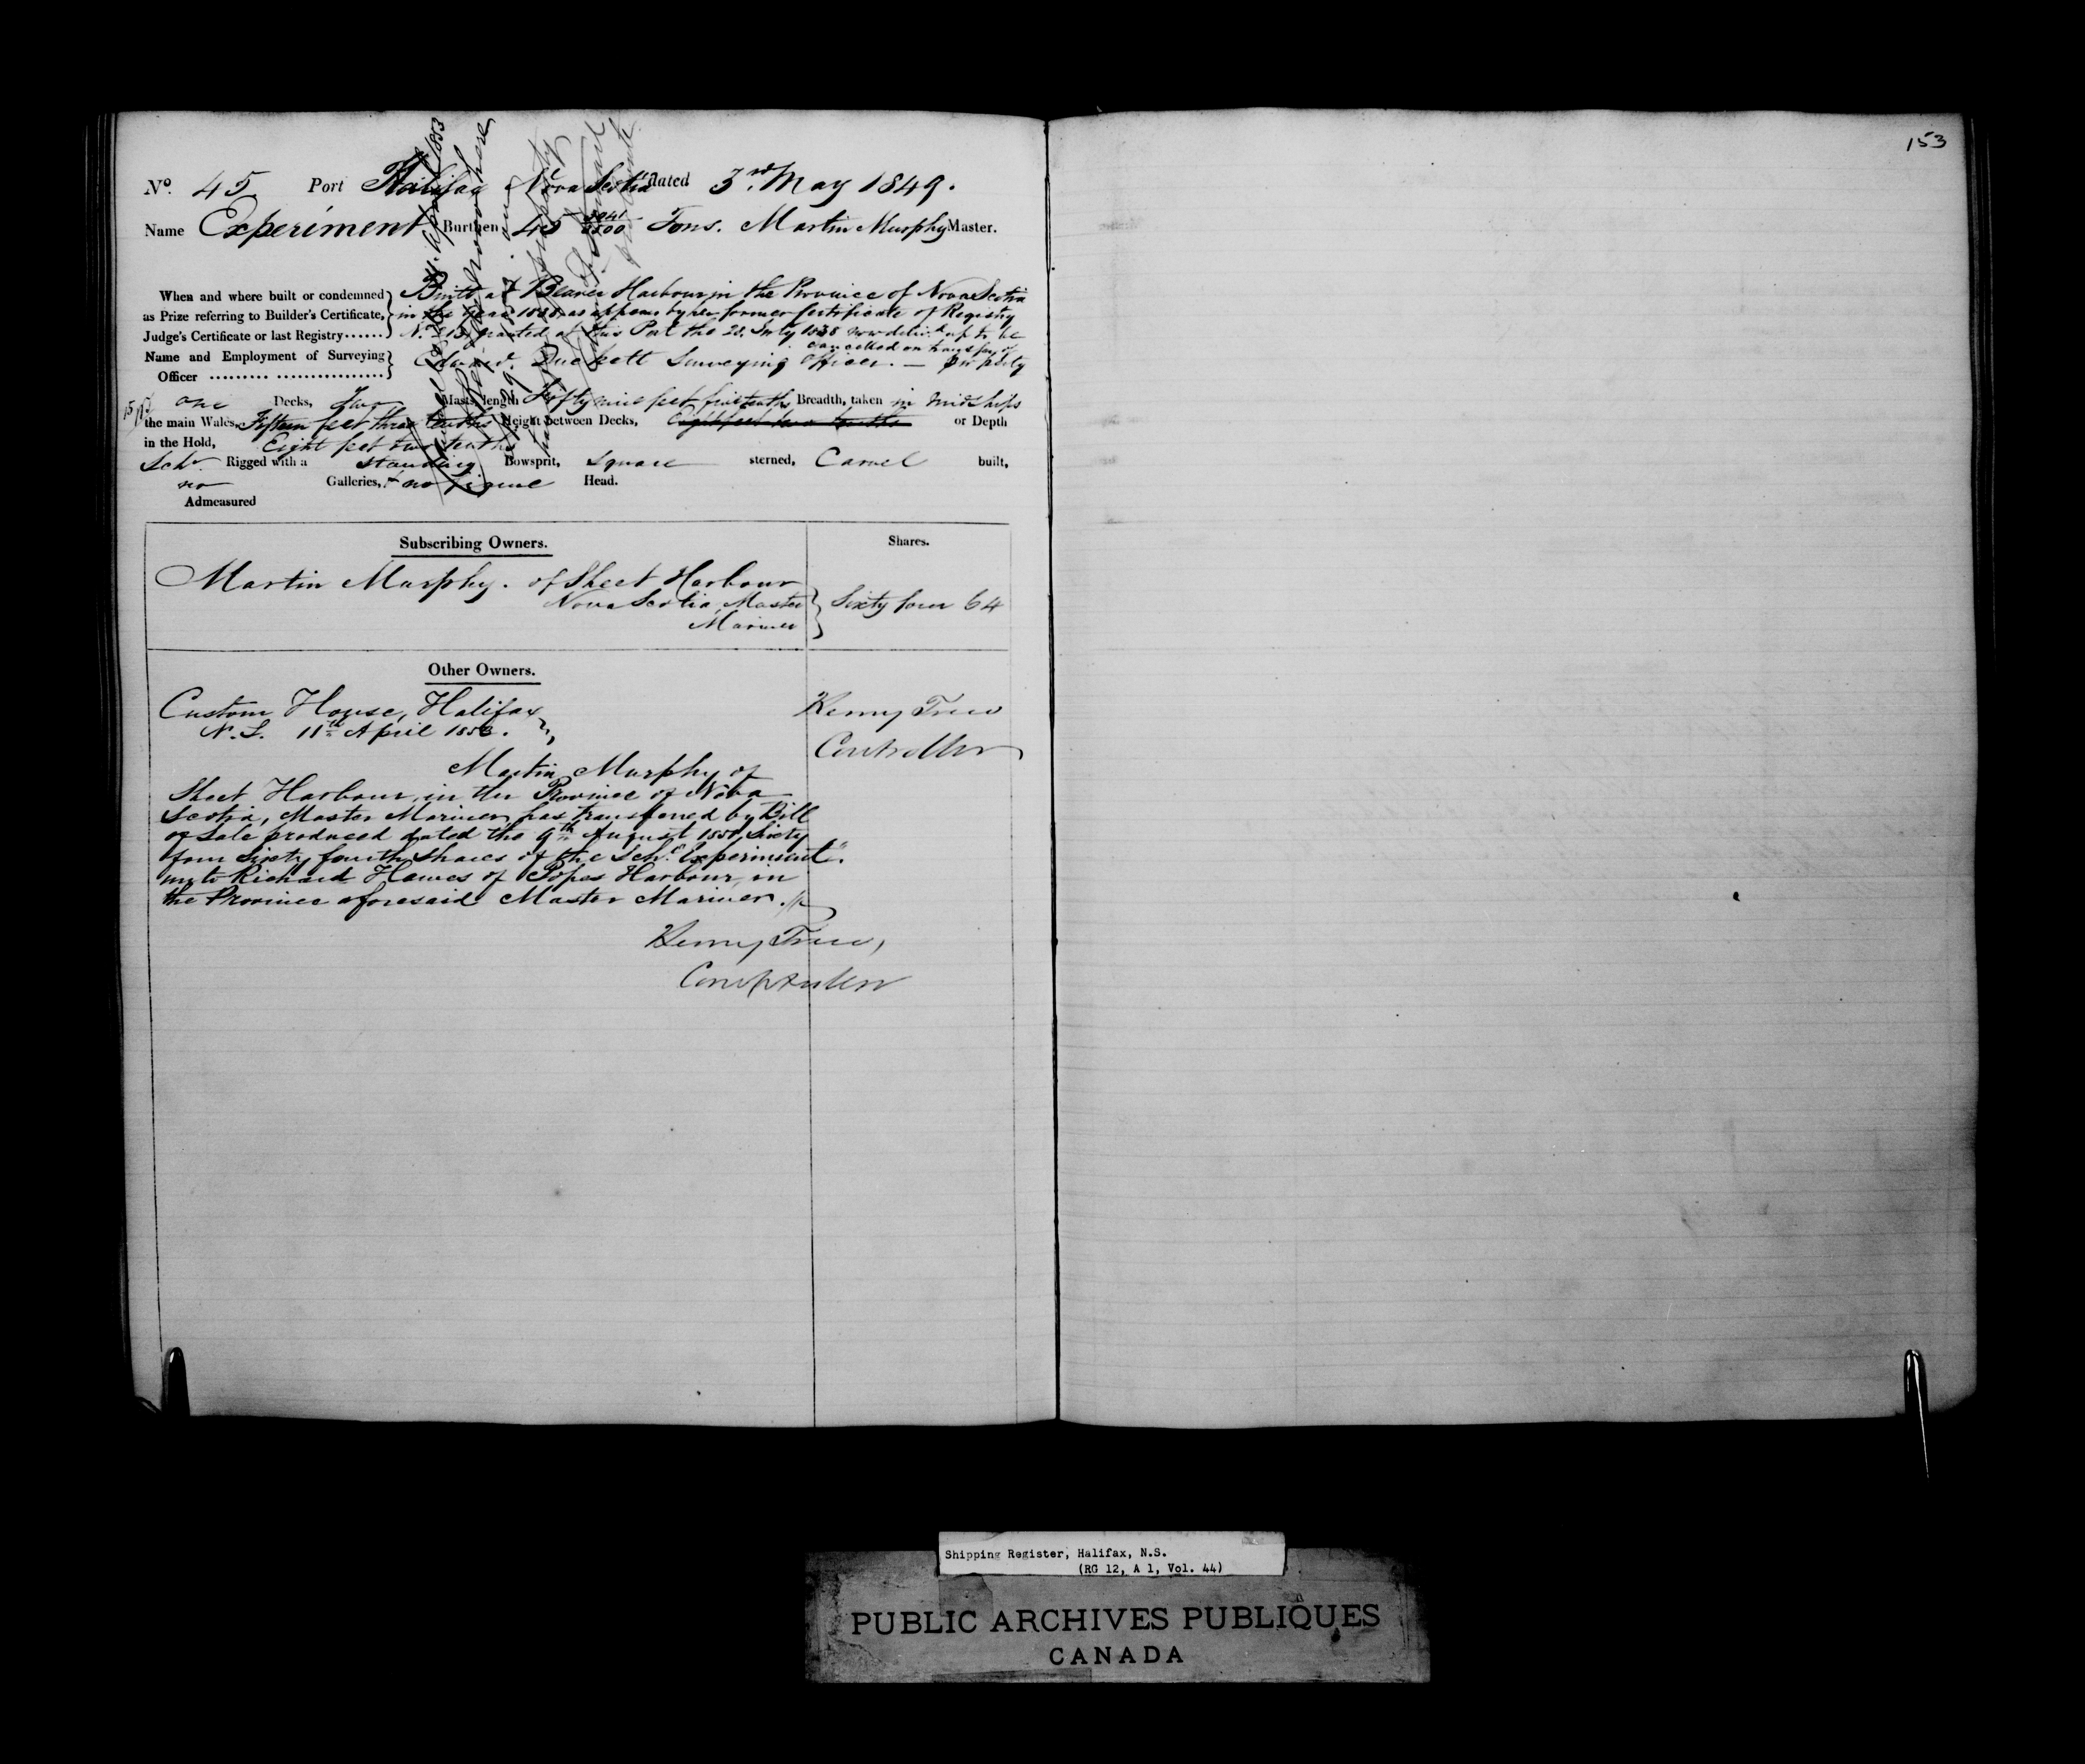 153
No. 45 Port Halifax Nova Scotia dated 3rd May 1849.
Name Experiment Burthen 45 Tons. Martin Murphy Master.
When and where built or condemned as Prize referring to Builder's Certificate, Judge's Certificate or last Registry......
Built at Beaver Harbour in the Province of Nova Scotia
in the year 1838 as appears by her former Certificate of Registry
granted at this Port the 28. July 1838 now deliv.d up to be
cancelled on transfer of
property
Name and Employment of Surveying Officer ......... ................
Edward. Duckett Surveying Officer. —
one Decks, two Masts, length Fifty nine feet five tenths Breadth, taken in midships
the main Wales, Fifteen feet three tenths Height between Decks, Eight feet two tenths or Depth
in the Hold, Eight feet two tenths
Schr. Rigged with a standing Bowsprit, square sterned, Carvel built,
no Galleries, & no figure Head.
Admeasured
Subscribing Owners. Shares.
Martin Murphy. of Sheet Harbour
Nova Scotia, Master Sixty four 64
Mariner
Other Owners.
Custom House, Halifax
N.S. 11th April 1853.
Henry Trew
Controller
Martin Murphy of
Sheet Harbour, in the Province of Nova
Scotia, Master Mariner has transferred by Bill
of Sale produced dated the 9th August 1850, Sixty
four Sixty fourth Shares of the Schr. "Experiment".
unto Richard Hawes of Popes Harbour, in
the Province aforesaid Master Mariner.
Henry Trew,
Comptroller
Shipping Register, Halifax, N.S.
(RG 12, A 1, Vol. 44)
PUBLIC ARCHIVES PUBLIQUES
CANADA